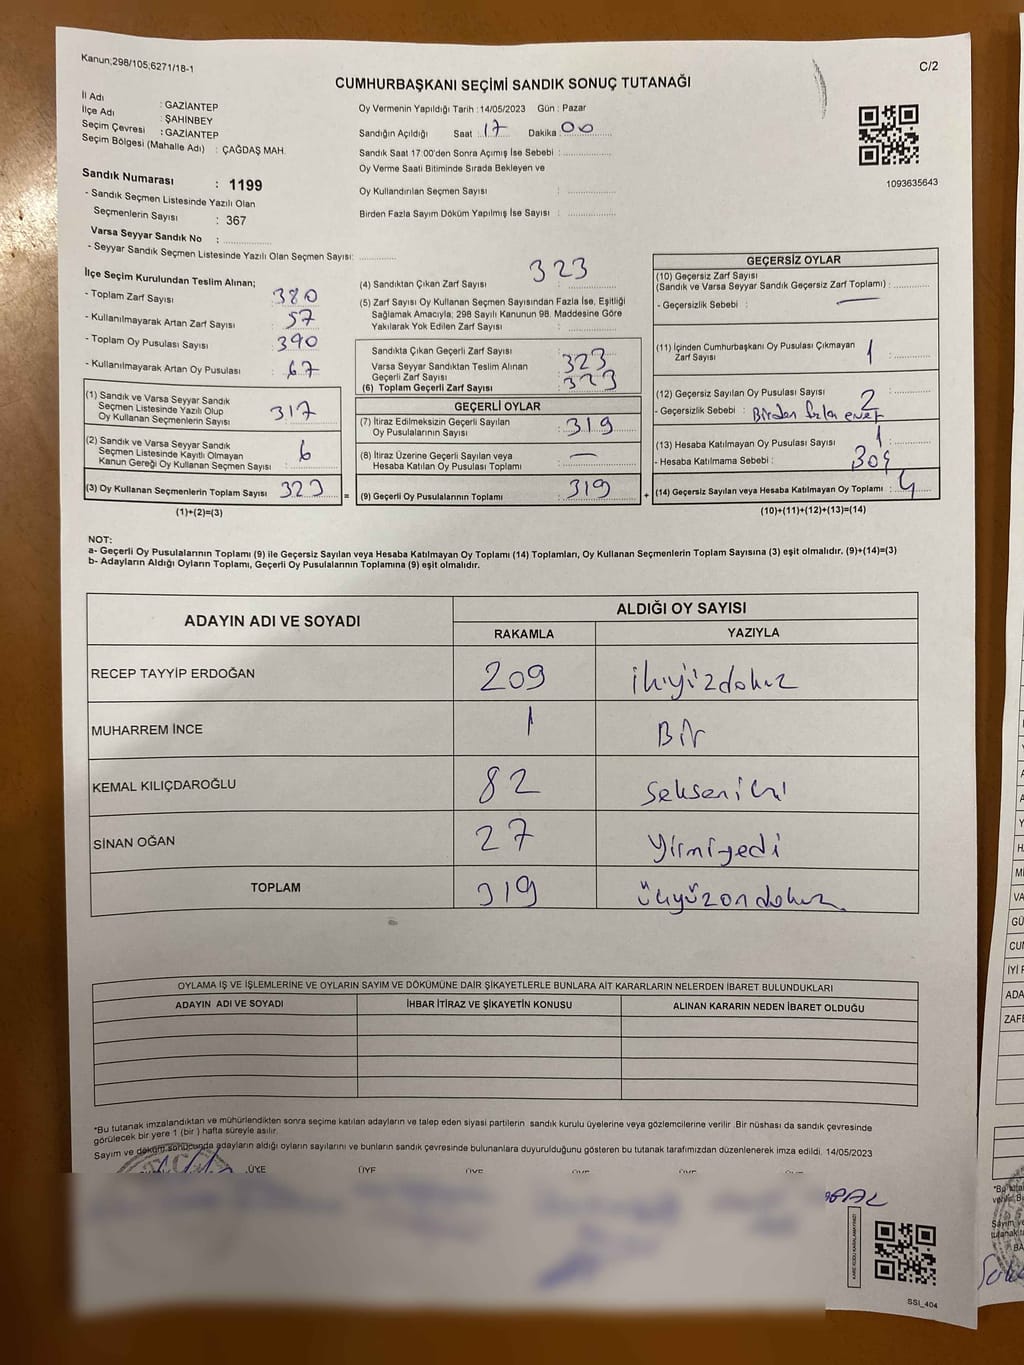 Kanun;298/105;6271/18-1
C/2
CUMHURBAŞKANI SEÇİMİ SANDIK SONUÇ TUTANAĞI
İl Adı : GAZİANTEP
İlçe Adı : ŞAHİNBEY
Seçim Çevresi : GAZİANTEP
Seçim Bölgesi (Mahalle Adı) : ÇAĞDAŞ MAH.
Oy Vermenin Yapıldığı Tarih : 14/05/2023 Gün : Pazar
Sandığın Açıldığı Saat : 17 Dakika 00
Sandık Saat 17:00'den Sonra Açımış İse Sebebi :
Oy Verme Saati Bitiminde Sırada Bekleyen ve
Oy Kullandırılan Seçmen Sayısı :
Birden Fazla Sayım Döküm Yapılmış İse Sayısı :
1093635643
Sandık Numarası : 1199
- Sandık Seçmen Listesinde Yazılı Olan
Seçmenlerin Sayısı : 367
Varsa Seyyar Sandık No :
- Seyyar Sandık Seçmen Listesinde Yazılı Olan Seçmen Sayısı:
İlçe Seçim Kurulundan Teslim Alınan;
- Toplam Zarf Sayısı : 380
- Kullanılmayarak Artan Zarf Sayısı : 57
- Toplam Oy Pusulası Sayısı : 390
- Kullanılmayarak Artan Oy Pusulası : 67
(1) Sandık ve Varsa Seyyar Sandık
Seçmen Listesinde Yazılı Olup
Oy Kullanan Seçmenlerin Sayısı : 317
(2) Sandık ve Varsa Seyyar Sandık
Seçmen Listesinde Kayıtlı Olmayan
Kanun Gereği Oy Kullanan Seçmen Sayısı : 6
(3) Oy Kullanan Seçmenlerin Toplam Sayısı : 323 =
(1)+(2)=(3)
(4) Sandıktan Çıkan Zarf Sayısı : 323
(5) Zarf Sayısı Oy Kullanan Seçmen Sayısından Fazla İse, Eşitliği
Sağlamak Amacıyla; 298 Sayılı Kanunun 98. Maddesine Göre
Yakılarak Yok Edilen Zarf Sayısı :
Sandıkta Çıkan Geçerli Zarf Sayısı : 323
Varsa Seyyar Sandıktan Teslim Alınan
Geçerli Zarf Sayısı :
(6) Toplam Geçerli Zarf Sayısı : 323
GEÇERLİ OYLAR
(7) İtiraz Edilmeksizin Geçerli Sayılan
Oy Pusulalarının Sayısı : 319
(8) İtiraz Üzerine Geçerli Sayılan veya
Hesaba Katılan Oy Pusulası Toplamı : —
(9) Geçerli Oy Pusulalarının Toplamı : 319 +
GEÇERSİZ OYLAR
(10) Geçersiz Zarf Sayısı
(Sandık ve Varsa Seyyar Sandık Geçersiz Zarf Toplamı) :
- Geçersizlik Sebebi : —
(11) İçinden Cumhurbaşkanı Oy Pusulası Çıkmayan
Zarf Sayısı : 1
(12) Geçersiz Sayılan Oy Pusulası Sayısı : 2
- Geçersizlik Sebebi : Birden fazla evet
(13) Hesaba Katılmayan Oy Pusulası Sayısı : 1
- Hesaba Katılmama Sebebi :
(14) Geçersiz Sayılan veya Hesaba Katılmayan Oy Toplamı : 4
(10)+(11)+(12)+(13)=(14)
NOT:
a- Geçerli Oy Pusulalarının Toplamı (9) ile Geçersiz Sayılan veya Hesaba Katılmayan Oy Toplamı (14) Toplamları, Oy Kullanan Seçmenlerin Toplam Sayısına (3) eşit olmalıdır. (9)+(14)=(3)
b- Adayların Aldığı Oyların Toplamı, Geçerli Oy Pusulalarının Toplamına (9) eşit olmalıdır.
ADAYIN ADI VE SOYADI
ALDIĞI OY SAYISI
RAKAMLA YAZIYLA
RECEP TAYYİP ERDOĞAN 209 ikiyüzdokuz
MUHARREM İNCE 1 Bir
KEMAL KILIÇDAROĞLU 82 Seksen iki
SİNAN OĞAN 27 Yirmiyedi
TOPLAM 319 üçyüzondokuz
OYLAMA İŞ VE İŞLEMLERİNE VE OYLARIN SAYIM VE DÖKÜMÜNE DAİR ŞİKAYETLERLE BUNLARA AİT KARARLARIN NELERDEN İBARET BULUNDUKLARI
ADAYIN ADI VE SOYADI İHBAR İTİRAZ VE ŞİKAYETİN KONUSU ALINAN KARARIN NEDEN İBARET OLDUĞU
*Bu tutanak imzalandıktan ve mühürlendikten sonra seçime katılan adayların ve talep eden siyasi partilerin sandık kurulu üyelerine veya gözlemcilerine verilir .Bir nüshası da sandık çevresinde
görülecek bir yere 1 (bir ) hafta süreyle asılır.
Sayım ve döküm sonucunda adayların aldığı oyların sayılarını ve bunların sandık çevresinde bulunanlara duyurulduğunu gösteren bu tutanak tarafımızdan düzenlenerek imza edildi. 14/05/2023
ÜYE ÜYE ÜYE ÜYE ÜYE
SSI_404